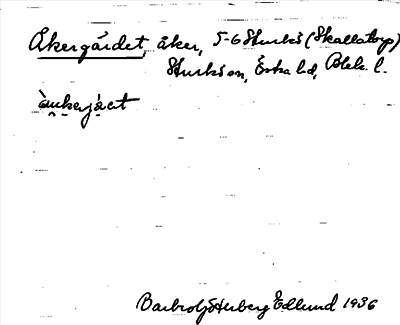 Åkergärdet, åker, 5-6 Sturkö (Skallatorp)
Sturkö sn, Östra hd, Blek. l.
Barbro Söderberg Edlund 1936